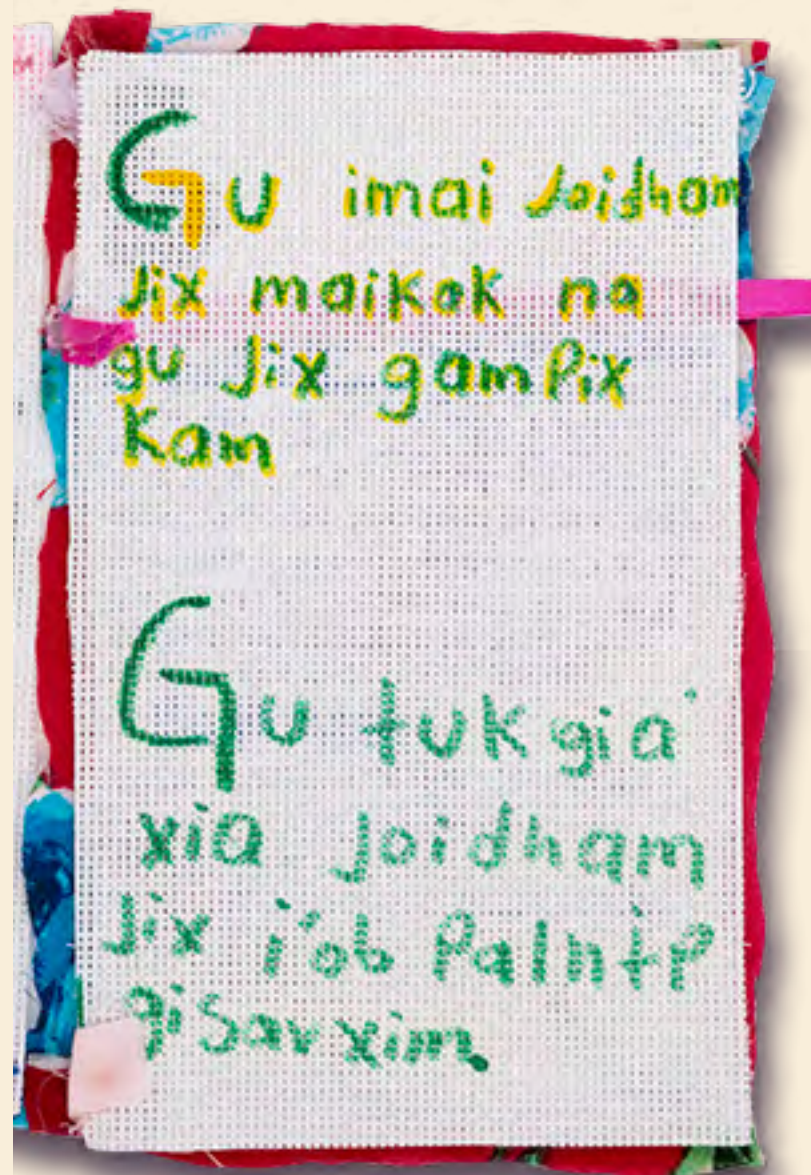 Gu imai Joidham
Jix maikak na
gu Jix gampix
kam
Gu tukgia'
xia Joidham
Jix i'ob Palntp
gisavxim.